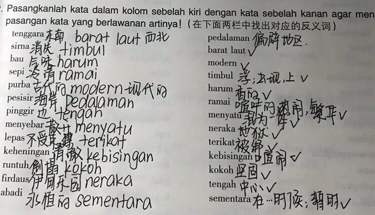 Pasangkanlah kata dalam kolom sebelah kiri dengan kata sebelah kanan agar men
pasangan kata yang berlawanan artinya! (在下面两栏中找出对应的反义词)
tenggara 东南 barat laut 西北 pedalaman 偏僻地区
sirna 消失 timbul barat laut ✓
bau 气味 harum modern ✓
sepi 冷清 ramai timbul 浮出,现上 ✓
purba 古代的 modern 现代的 harum 香的 ✓
pesisir 海岸 pedalaman ramai 喧哗的 热闹, 繁华 ✓
pinggir 边 tengah menyatu ✓
menyebar 散开 menyatu neraka 地狱 ✓
lepas terikat terikat 被绑 ✓
keheningan 清静 kebisingan kebisingan 喧闹 ✓
runtuh 倒塌 kokoh kokoh 坚固 ✓
firdaus 伊甸乐园 neraka tengah 中心 ✓
abadi 永恒的 sementara sementara 在…时候; 暂时 ✓